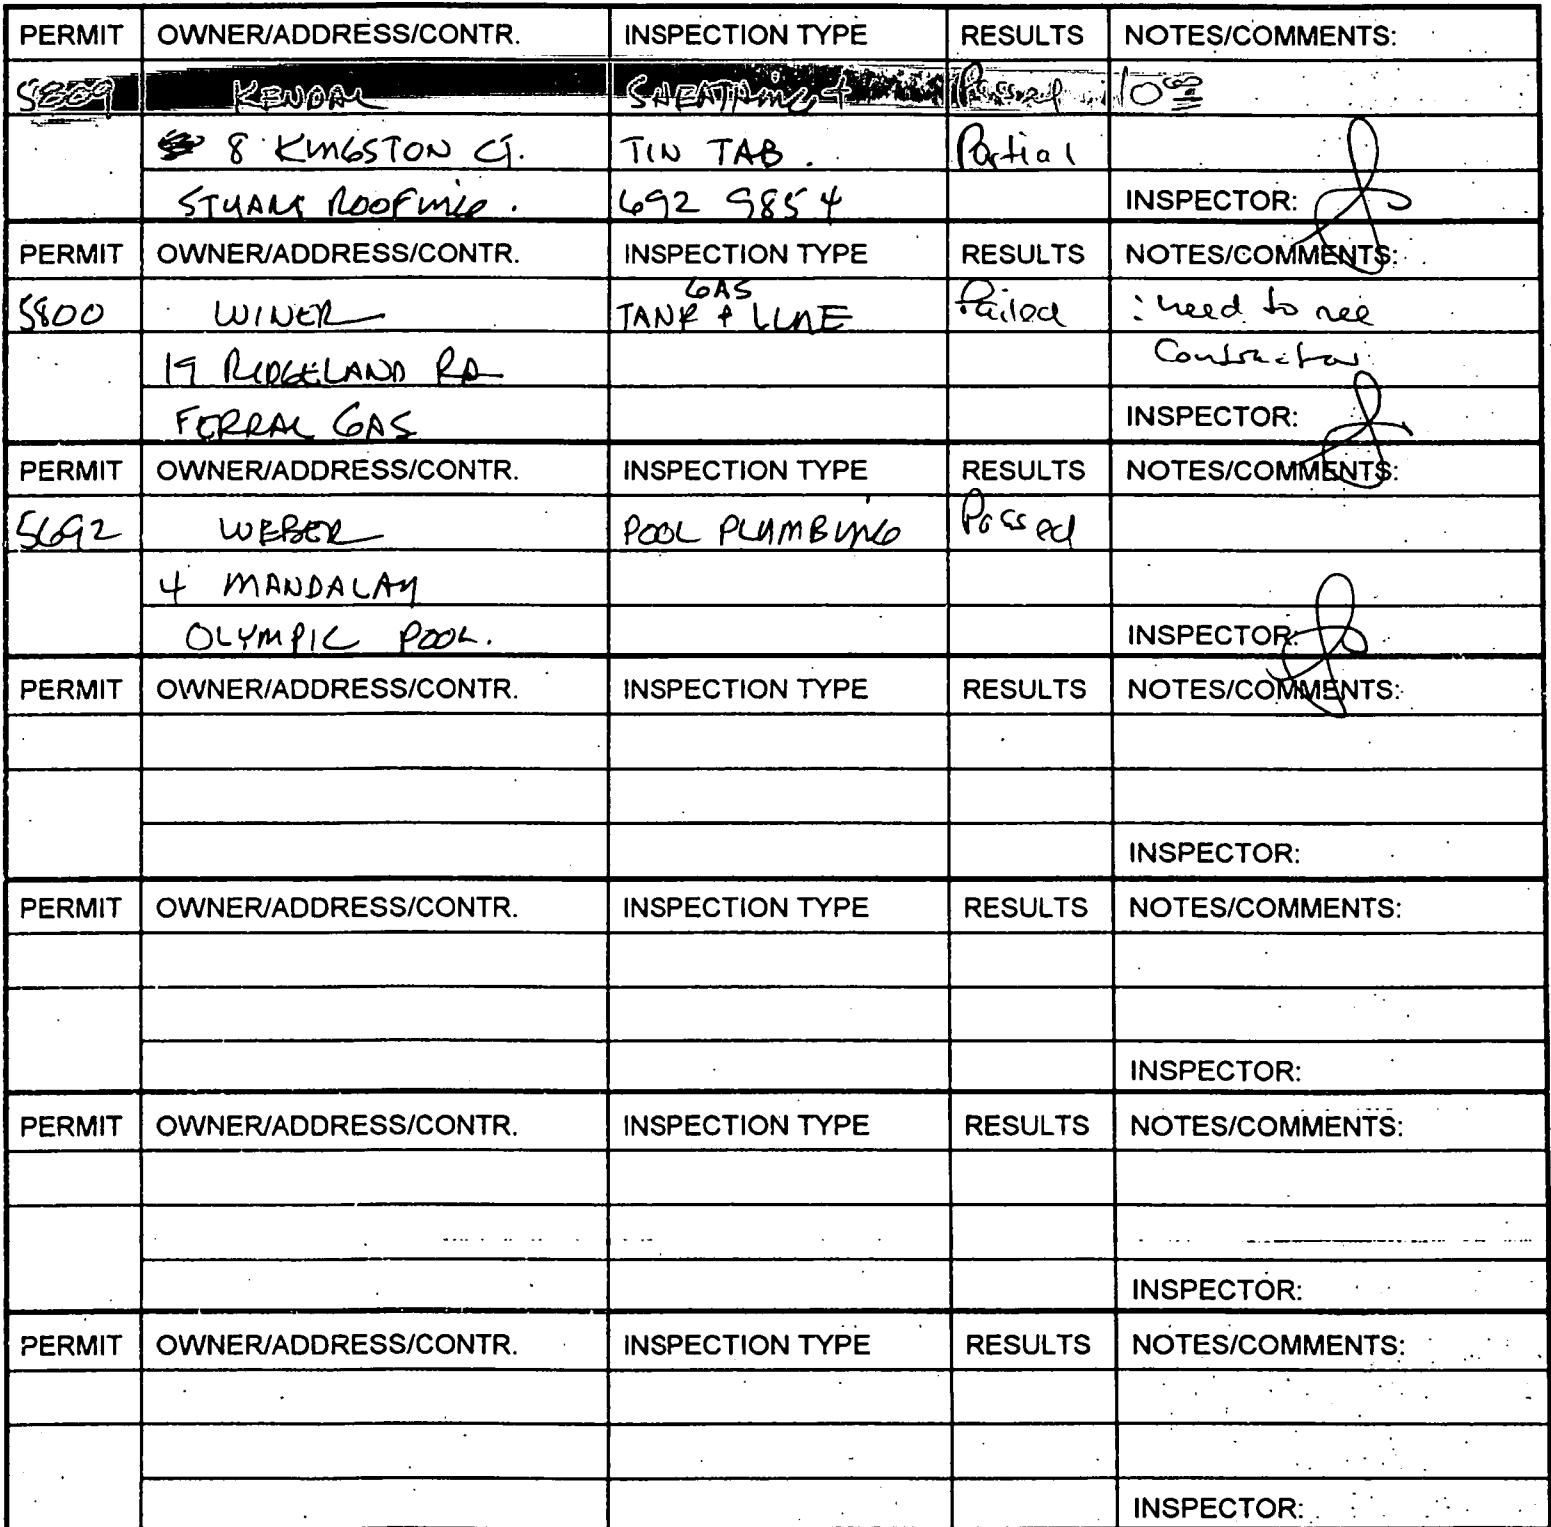 PERMIT OWNER/ADDRESS/CONTR. INSPECTION TYPE RESULTS NOTES/COMMENTS:
5809 KENDAL SHEATHING + Passed 10:00
8 KINGSTON CT. TIN TAB. Partial
STUART ROOFING. 692 9854 INSPECTOR:
PERMIT OWNER/ADDRESS/CONTR. INSPECTION TYPE RESULTS NOTES/COMMENTS:
5800 WINER GAS TANK & LINE Failed : need to see
19 RIDGELAND RD Contractor
FERRAL GAS INSPECTOR:
PERMIT OWNER/ADDRESS/CONTR. INSPECTION TYPE RESULTS NOTES/COMMENTS:
5692 WEBER POOL PLUMBING Passed
4 MANDALAY
OLYMPIC POOL. INSPECTOR:
PERMIT OWNER/ADDRESS/CONTR. INSPECTION TYPE RESULTS NOTES/COMMENTS:
INSPECTOR:
PERMIT OWNER/ADDRESS/CONTR. INSPECTION TYPE RESULTS NOTES/COMMENTS:
INSPECTOR:
PERMIT OWNER/ADDRESS/CONTR. INSPECTION TYPE RESULTS NOTES/COMMENTS:
INSPECTOR:
PERMIT OWNER/ADDRESS/CONTR. INSPECTION TYPE RESULTS NOTES/COMMENTS:
INSPECTOR: